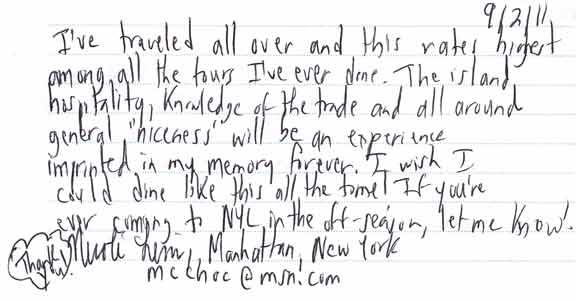 9/2/11
I've traveled all over and this rates higest
among all the tours I've ever done. The island
hospitality, knowledge of the trade and all around
general "niceness" will be an experience
imprinted in my memory forever. I wish I
could dine like this all the time! If you're
ever coming to NYC in the off-season, let me know!
Manhattan, New York
mcchoc@msn.com